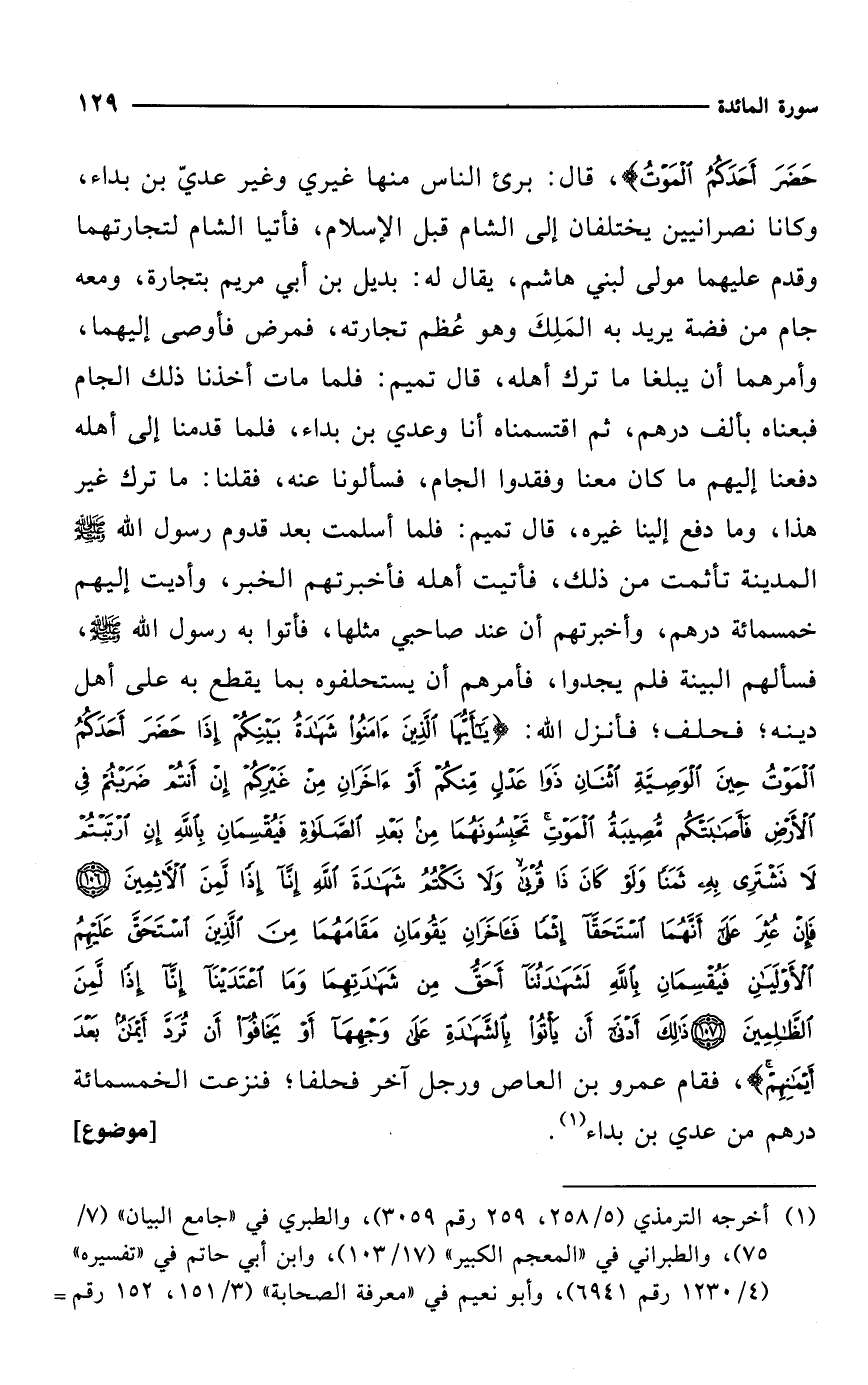 سورة المائدة ١٢٩
حَضَرَ أَحَدَكُمُ ٱلْمَوْتُ﴾، قال: برئ الناس منها غيري وغير عديّ بن بداء،
وكانا نصرانيين يختلفان إلى الشام قبل الإسلام، فأتيا الشام لتجارتهما
وقدم عليهما مولى لبني هاشم، يقال له: بديل بن أبي مريم بتجارة، ومعه
جام من فضة يريد به المَلِكَ وهو عُظم تجارته، فمرض فأوصى إليهما،
وأمرهما أن يبلغا ما ترك أهله، قال تميم: فلما مات أخذنا ذلك الجام
فبعناه بألف درهم، ثم اقتسمناه أنا وعدي بن بداء، فلما قدمنا إلى أهله
دفعنا إليهم ما كان معنا وفقدوا الجام، فسألونا عنه، فقلنا: ما ترك غير
هذا، وما دفع إلينا غيره، قال تميم: فلما أسلمت بعد قدوم رسول الله ﷺ
المدينة تأثمت من ذلك، فأتيت أهله فأخبرتهم الخبر، وأديت إليهم
خمسمائة درهم، وأخبرتهم أن عند صاحبي مثلها، فأتوا به رسول الله ﷺ،
فسألهم البينة فلم يجدوا، فأمرهم أن يستحلفوه بما يقطع به على أهل
دينه؛ فحلف؛ فأنزل الله: ﴿يَٰٓأَيُّهَا ٱلَّذِينَ ءَامَنُوا۟ شَهَٰدَةُ بَيْنِكُمْ إِذَا حَضَرَ أَحَدَكُمُ
ٱلْمَوْتُ حِينَ ٱلْوَصِيَّةِ ٱثْنَانِ ذَوَا عَدْلٍ مِّنكُمْ أَوْ ءَاخَرَانِ مِنْ غَيْرِكُمْ إِنْ أَنتُمْ ضَرَبْتُمْ فِى
ٱلْأَرْضِ فَأَصَٰبَتْكُم مُّصِيبَةُ ٱلْمَوْتِ ۚ تَحْبِسُونَهُمَا مِنۢ بَعْدِ ٱلصَّلَوٰةِ فَيُقْسِمَانِ بِٱللَّهِ إِنِ ٱرْتَبْتُمْ
لَا نَشْتَرِى بِهِۦ ثَمَنًا وَلَوْ كَانَ ذَا قُرْبَىٰ ۙ وَلَا نَكْتُمُ شَهَٰدَةَ ٱللَّهِ إِنَّآ إِذًا لَّمِنَ ٱلْـَٔاثِمِينَ ١٠٦
فَإِنْ عُثِرَ عَلَىٰٓ أَنَّهُمَا ٱسْتَحَقَّآ إِثْمًا فَـَٔاخَرَانِ يَقُومَانِ مَقَامَهُمَا مِنَ ٱلَّذِينَ ٱسْتَحَقَّ عَلَيْهِمُ
ٱلْأَوْلَيَٰنِ فَيُقْسِمَانِ بِٱللَّهِ لَشَهَٰدَتُنَآ أَحَقُّ مِن شَهَٰدَتِهِمَا وَمَا ٱعْتَدَيْنَآ إِنَّآ إِذًا لَّمِنَ
ٱلظَّٰلِمِينَ ١٠٧ ذَٰلِكَ أَدْنَىٰٓ أَن يَأْتُوا۟ بِٱلشَّهَٰدَةِ عَلَىٰ وَجْهِهَآ أَوْ يَخَافُوٓا۟ أَن تُرَدَّ أَيْمَٰنٌۢ بَعْدَ
أَيْمَٰنِهِمْ ۗ﴾، فقام عمرو بن العاص ورجل آخر فحلفا؛ فنزعت الخمسمائة
درهم من عدي بن بداء(١). [موضوع]
(١) أخرجه الترمذي (٢٥٨/٥، ٢٥٩ رقم ٣٠٥٩)، والطبري في «جامع البيان» (٧/
٧٥)، والطبراني في «المعجم الكبير» (١٠٣/١٧)، وابن أبي حاتم في «تفسيره»
(١٢٣٠/٤ رقم ٦٩٤١)، وأبو نعيم في «معرفة الصحابة» (١٥١/٣، ١٥٢ رقم =